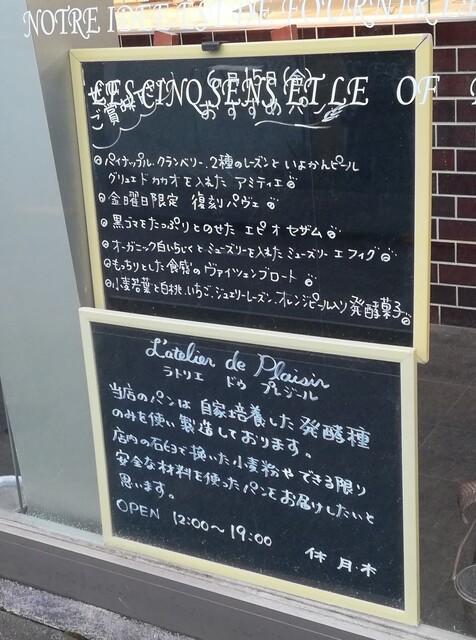 NOTRE IDÉE EST DE FOURNIR
LES CINQ SENS ET LE OF
ぜひ
ご賞味下さい
6月15日(金)
おすすめパン
パイナップル、クランベリー、2種のレーズンといよかんピール
グリュエドカカオを入れた アミティエ
金曜日限定 復刻パヴェ
黒ゴマをたっぷりとのせた エピオセザム
オーガニック白いちじくとミューズリーを入れたミューズリーエフィグ
もっちりとした食感のヴァイツェンブロート
小麦若葉と白桃、いちご、ジュエリーレーズン、オレンジピール入り発酵菓子
L'atelier de Plaisir
ラトリエ ドゥ プレジール
当店のパンは自家培養した発酵種
のみを使い製造しております。
店内の石臼で挽いた小麦粉やできる限り
安全な材料を使ったパンをお届けしたいと
思います。
OPEN 12:00~19:00
休 月・木